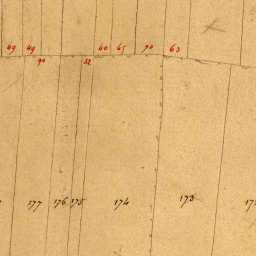 49 49 60 65 70 63
90 52
177 176 175 174 173